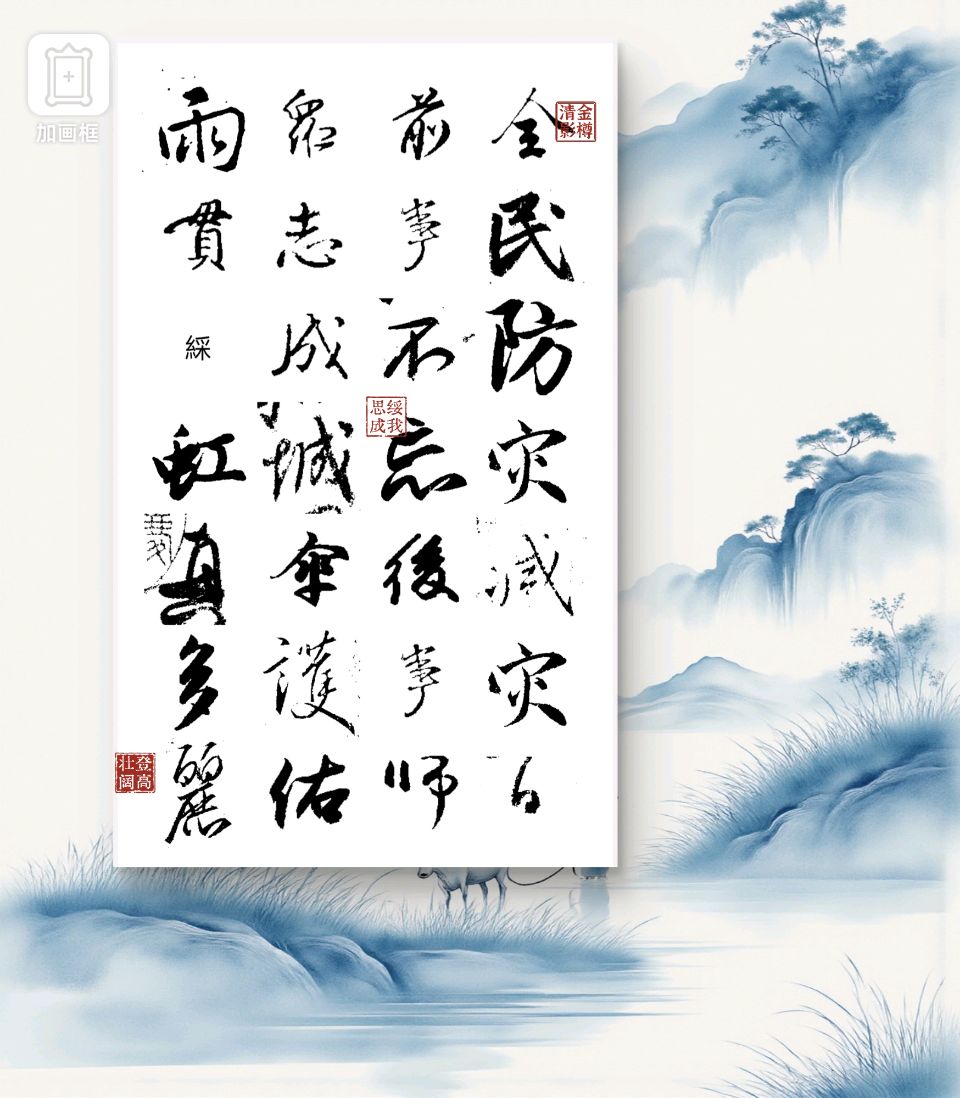 全民防灾减灾日
前事不忘後事师
眾志成城伞護佑
雨貫綵虹真多麗
金樽清影
绥我思成
登高壮阔
加画框